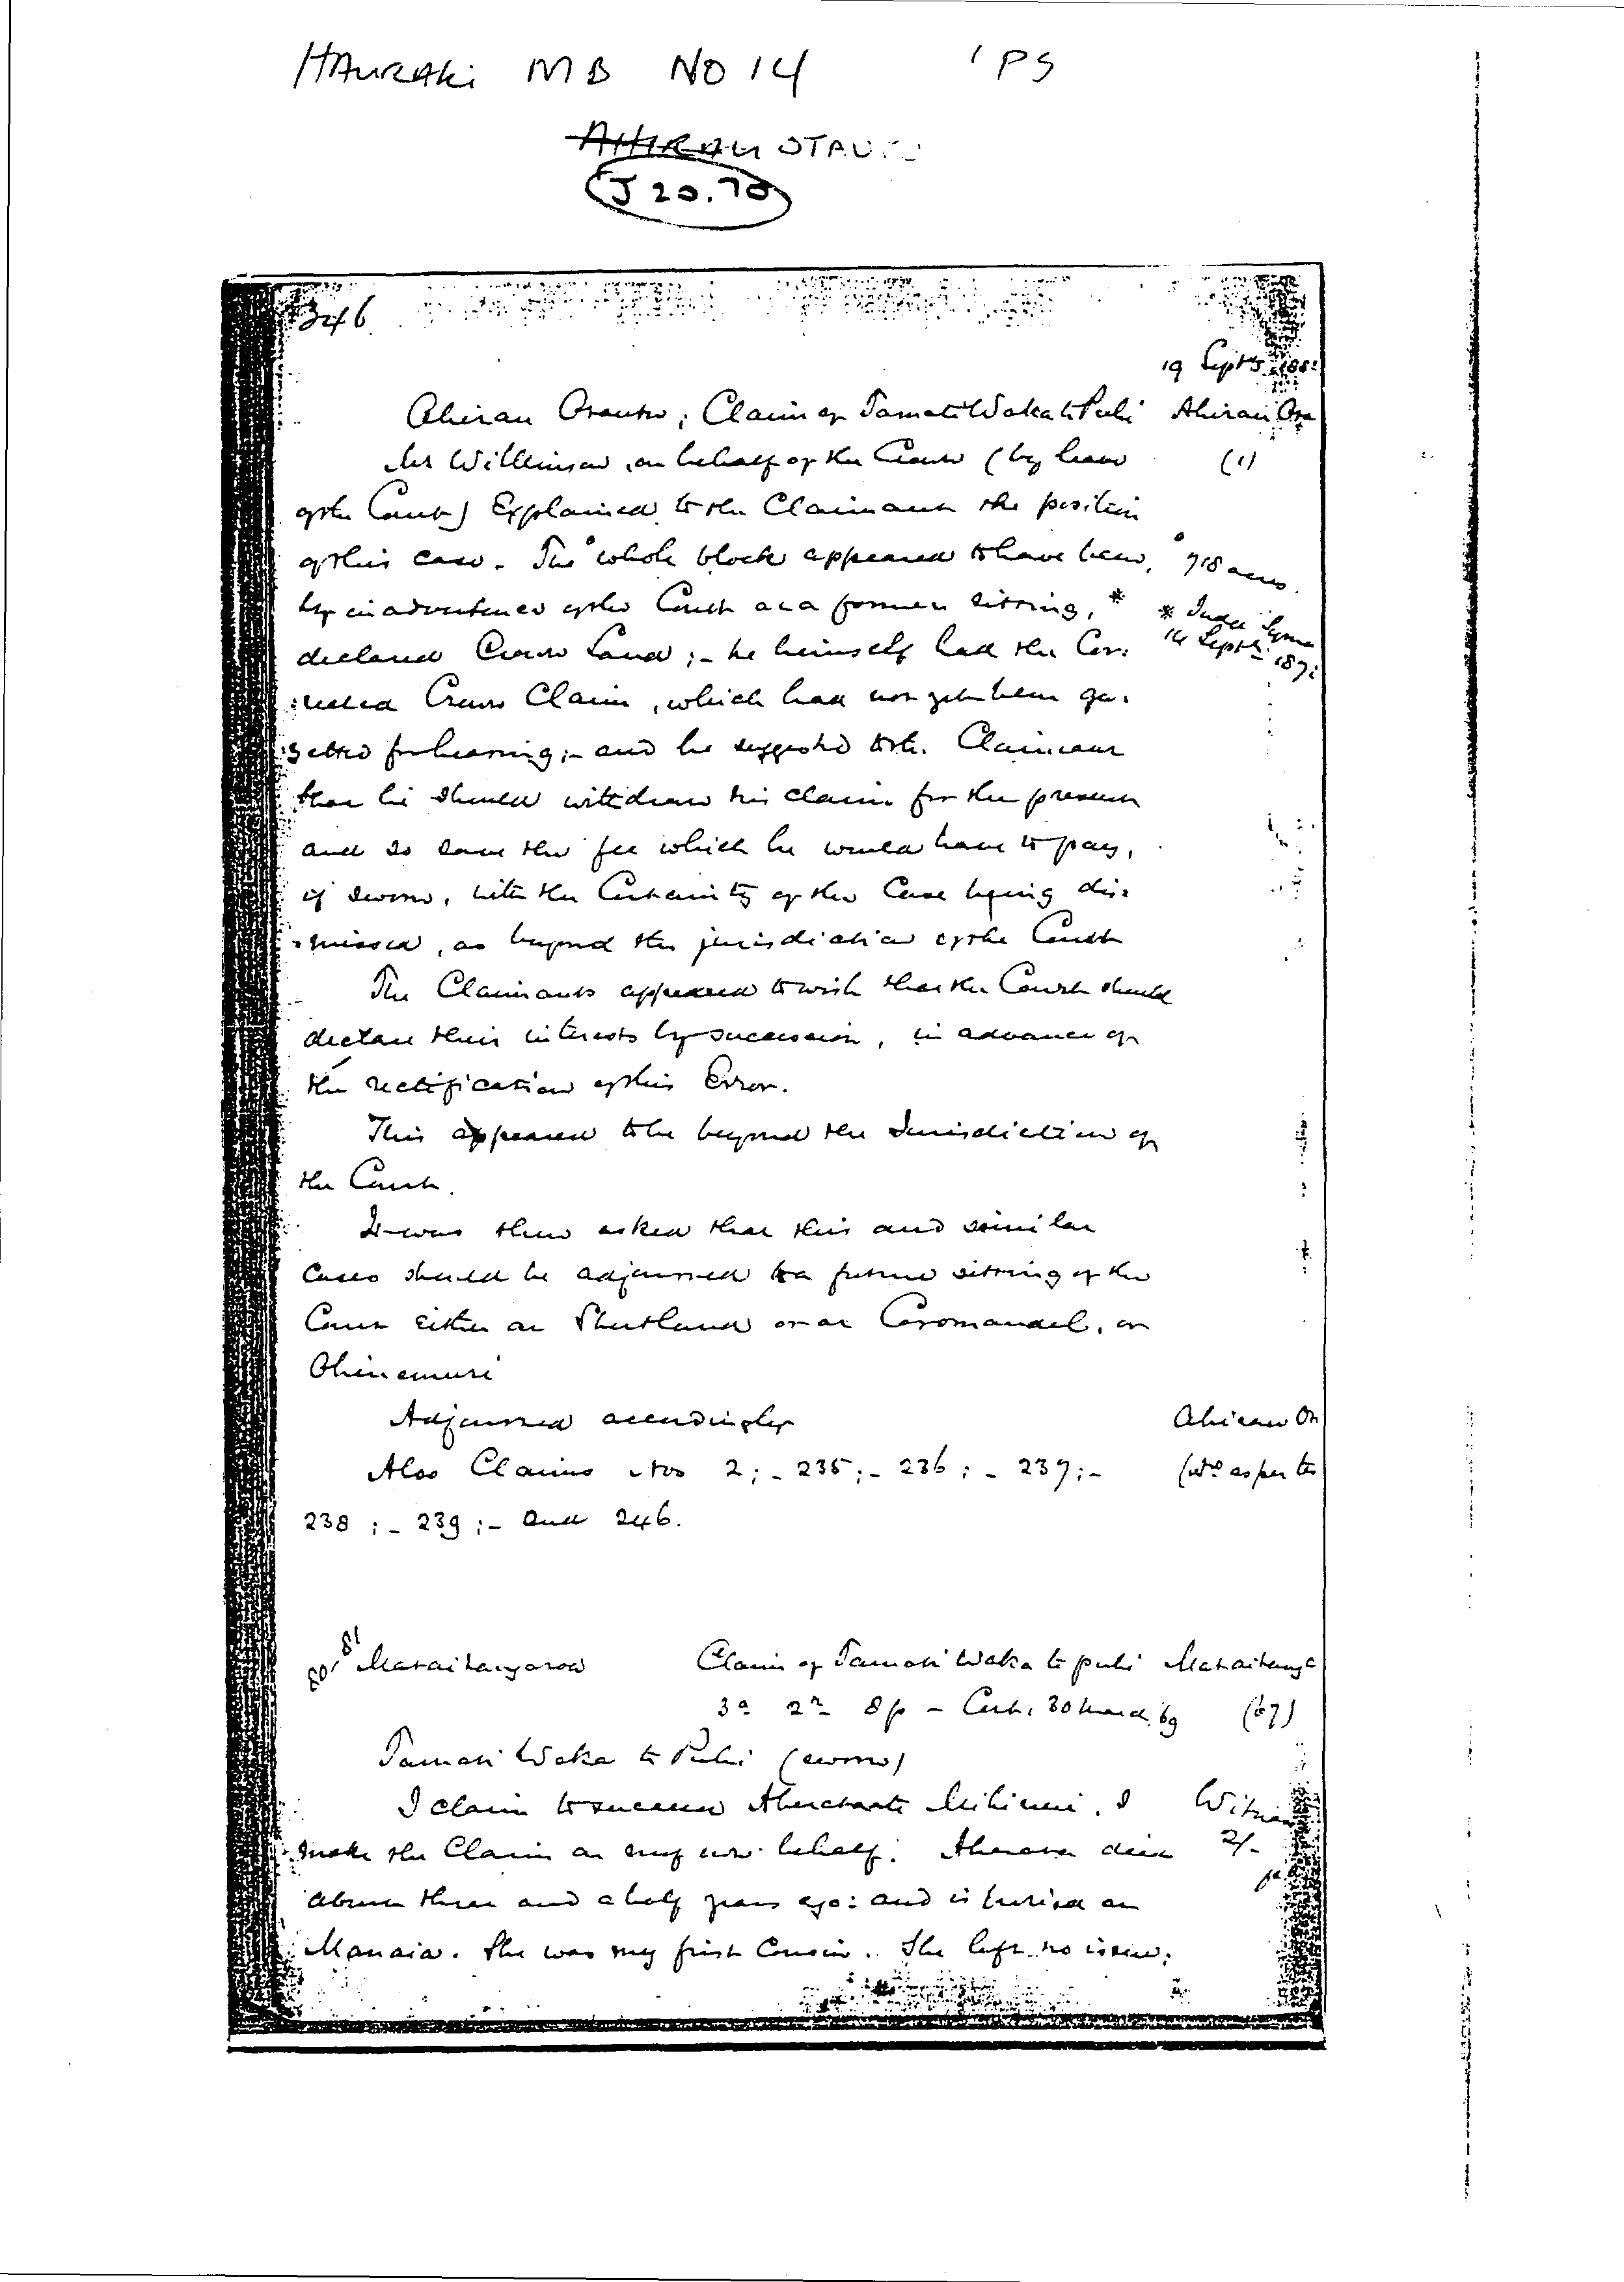 HAURAKI MB NO 14 1 PS
AHIRAU OTAU
J 20.70
346
19 Septr 188
Ahirau Claim of Tamati Waka te Puhi Ahirau
Mr Wilkinson, on behalf of the Crown (by leave (1)
of the Court) Explained to the Claimant the position
of this case. The whole block appeared to have been, 718 acres
by inadvertence of the Court at a former sitting, * * Judge
declared Crown Land ;- he himself had the Cor: 14 Septr 187
:rected Crown Claim, which had not yet been ga:
:zetted for hearing ;- and he suggested to the Claimant
that he should withdraw his claim for the present
and so save the fee which he would have to pay,
if sworn, with the Certainty of the Case being dis:
:missed, as beyond the jurisdiction of the Court
The Claimants appeared to wish that the Court should
declare their interests by succession, in advance of
the rectification of this Error.
This appeared to be beyond the Jurisdiction of
the Court.
It was then asked that this and similar
Cases should be adjourned to a future sitting of the
Court either at Shortland or at Coromandel, or
Ohinemuri
Adjourned accordingly Ahirau
Also Claims Nos 2 ;- 235 ;- 236 ;- 237 ;- as per
238 ;- 239 ;- and 246.
Mataitangaroa Claim of Tamati Waka te puhi Mataitanga
3a 2r 8p - Cert. 30 March 69 (67)
Tamati Waka te Puhi (sworn)
I claim to succeed . I Witness
make the Claim on my own behalf. died 2/-
about three and a half years ago: and is buried at
Manaia. She was my first Cousin. She left no issue;